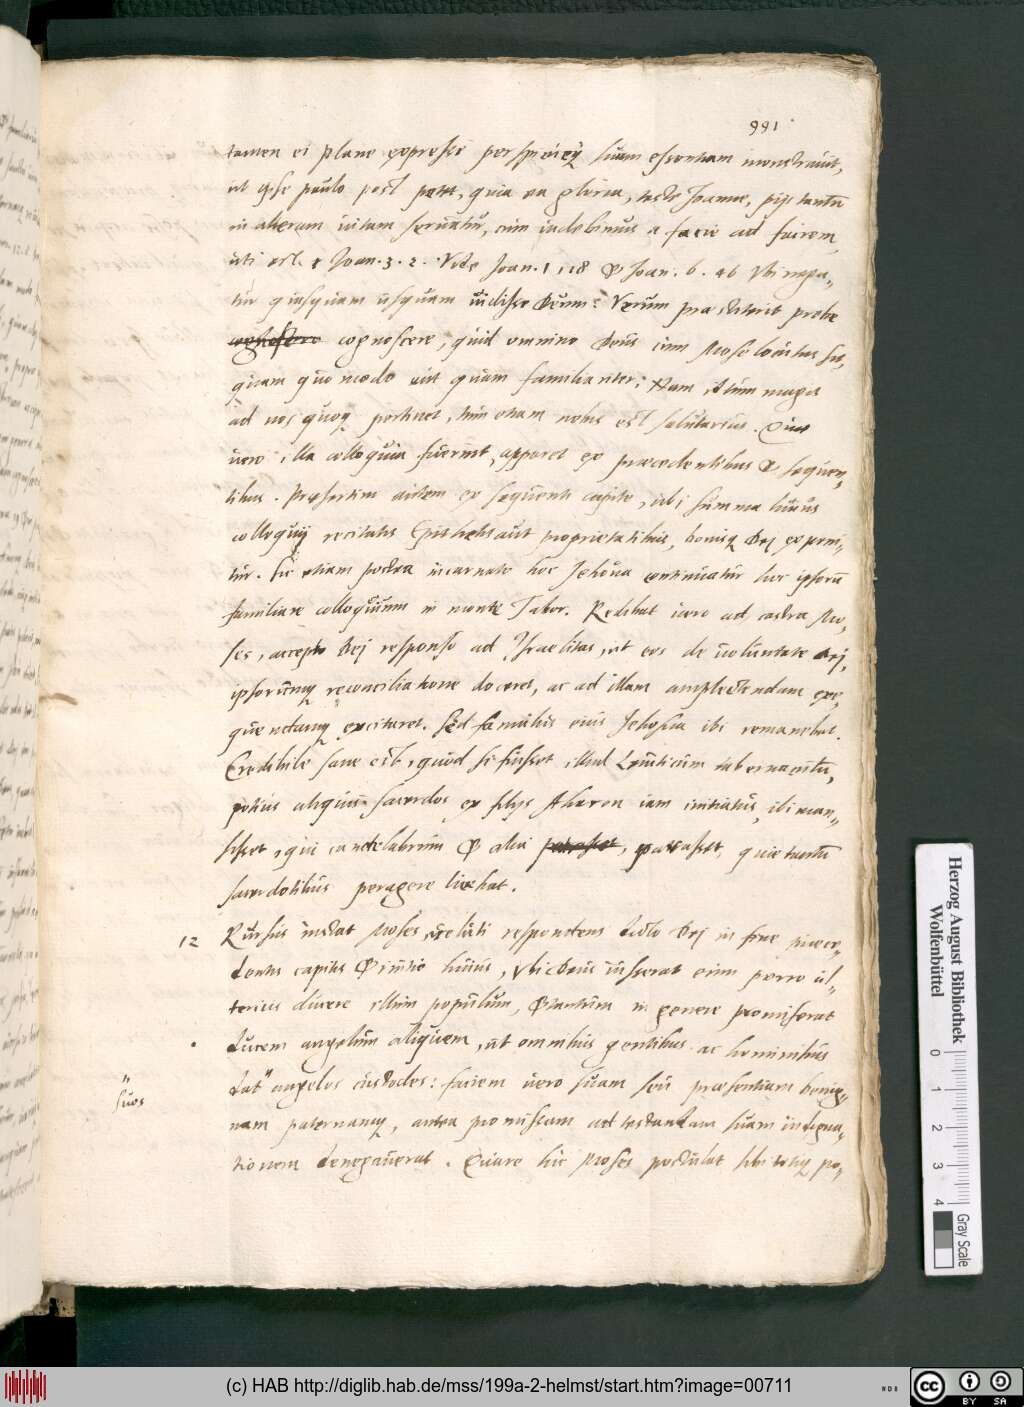 991
tamen ei plane expresse perspicueq suam essentiam monstrauit,
ut ipse paulo post patet, quia ea gloria, teste Joanne, pijs tantū
in alteram uitam seruatur, cum uidebimus a facie ad faciem,
uti est 1 Joan. 3. 2. Vide Joan. 1, 18 & Joan. 6. 46 Vbi nega„
tur quisquam usquam uidisse Deum: Verum praestiterit probe
cognoscere, quid omnino Deus cum Mose locutus sit,
quam quomodo aut quam familiariter: Nam istum magis
ad nos quoq pertinet, tum etiam nobis est salutarius. Quae
uero illa colloquia fuerint, apparet ex praecedentibus & sequen„
tibus. Praesertim autem ex sequenti capite, ubi summa huius
colloquij recitatis Epithetis aut proprietatibus, bonisq Dej exponi„
tur. Sic etiam postea incarnato hoc Jehoua continuatur hoc ipsorū
familiare colloquium in monte Tabor. Redibat uero ad castra Mo„
ses, accepto Dej responso ad Israelitas, ut eos de uoluntate Dej,
ipsorumq reconciliatione doceret, ac ad illam amplectendam exe„
quendamq excitaret. Sed famulus eius Jehosua ibi remanebat.
Credibile sane est, quod si fuisset illud Leuiticum tabernaculū,
potius aliquis sacerdos ex filijs Aharon iam initiatus, ibi man„
sisset, qui candelabrum & alia, parasset, quae tantū
sacerdotibus peragere licebat.
12 Rursus instat Moses, ueluti respondens dicto Dej in fine praece„
dentis capitis & initio huius, Vbi Deus iusserat eum porro ul„
terius ducere illum populum, & tantum in genere promiserat
ducem angelum aliquem, ut omnibus gentibus ac hominibus
dat" angelos custodes: faciem uero suam seu praesentiam benig„
" suos
nam paternamq, antea promissam ad testandam suam indigna„
tionem denegauerat. Quare hic Moses postulat sibi totiq po„
Herzog August Bibliothek
Wolfenbüttel
0 1 2 3 4
Gray Scale
(c) HAB http://diglib.hab.de/mss/199a-2-helmst/start.htm?image=00711
cc BY SA